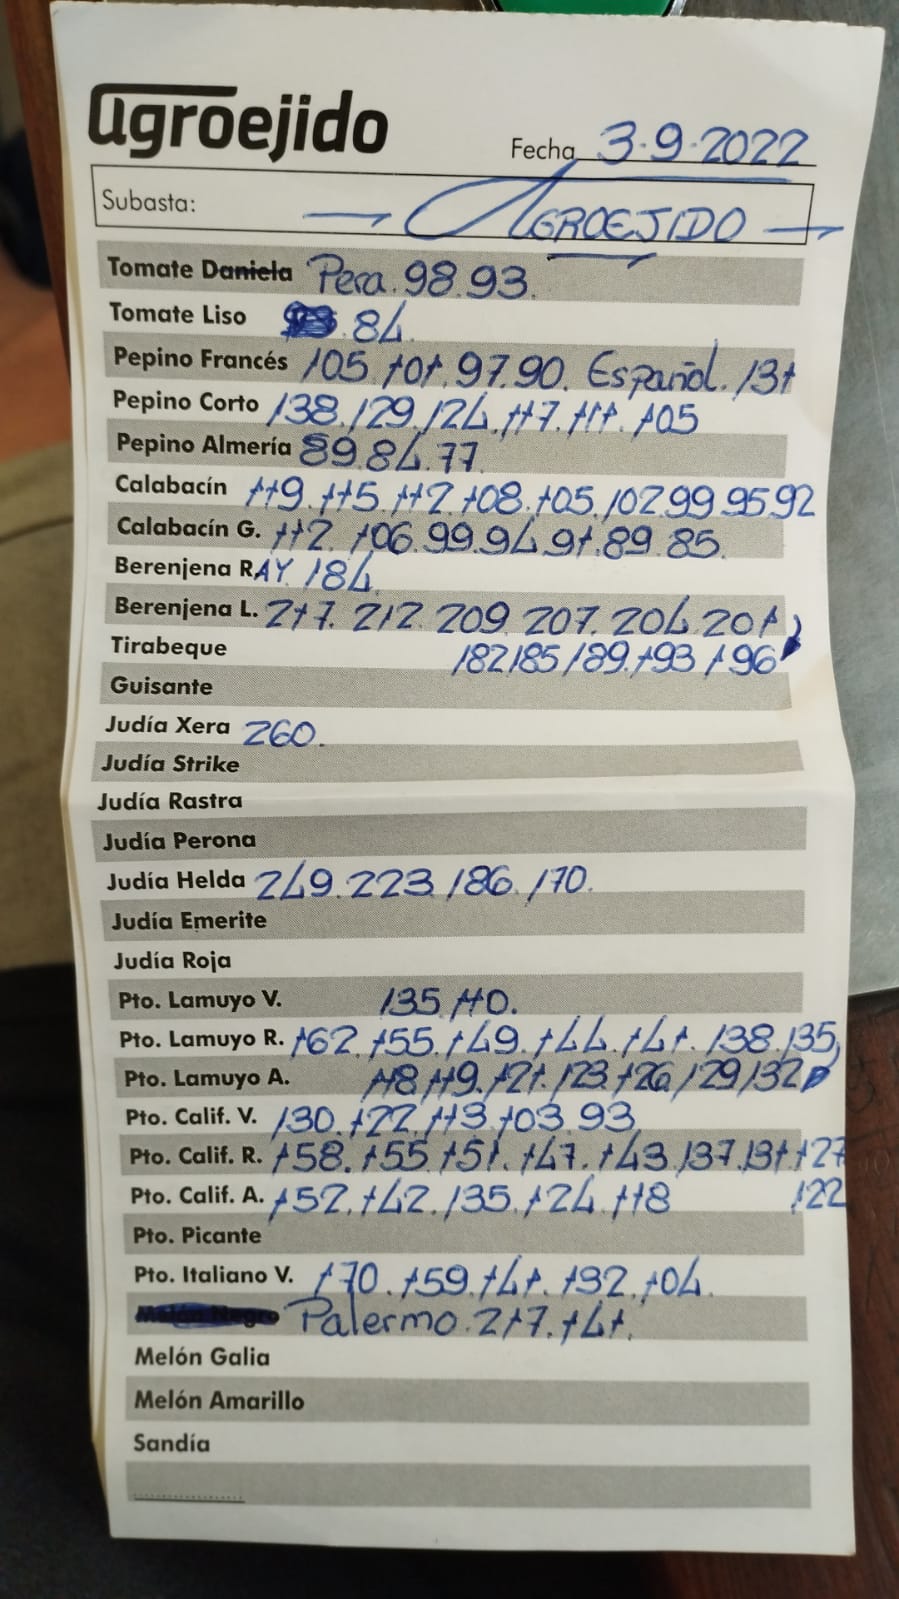 agroejido
Fecha 3-9-2022
Subasta: AGROEJIDO
Tomate Daniela Pera. 98. 93.
Tomate Liso 84.
Pepino Francés 105. 101. 97. 90. Español. 131
Pepino Corto 138. 129. 124. 117. 111. 105
Pepino Almería 89. 84. 77.
Calabacín 119. 115. 112. 108. 105. 102. 99. 95. 92
Calabacín G. 112. 106. 99. 94. 91. 89. 85.
Berenjena RAY. 184.
Berenjena L. 217. 212. 209. 207. 204. 201
Tirabeque 182 185 189. 193 196
Guisante
Judía Xera 260.
Judía Strike
Judía Rastra
Judía Perona
Judía Helda 249. 223. 186. 170.
Judía Emerite
Judía Roja
Pto. Lamuyo V. 135. 110.
Pto. Lamuyo R. 162. 155. 149. 144. 141. 138. 135
Pto. Lamuyo A. 118. 119. 121. 123. 126. 129. 132
Pto. Calif. V. 130. 122. 113. 103. 93
Pto. Calif. R. 158. 155. 151. 147. 143. 137. 131. 127
Pto. Calif. A. 152. 142. 135. 124. 118 122
Pto. Picante
Pto. Italiano V. 170. 159. 141. 132. 104.
Palermo. 217. 141.
Melón Galia
Melón Amarillo
Sandía